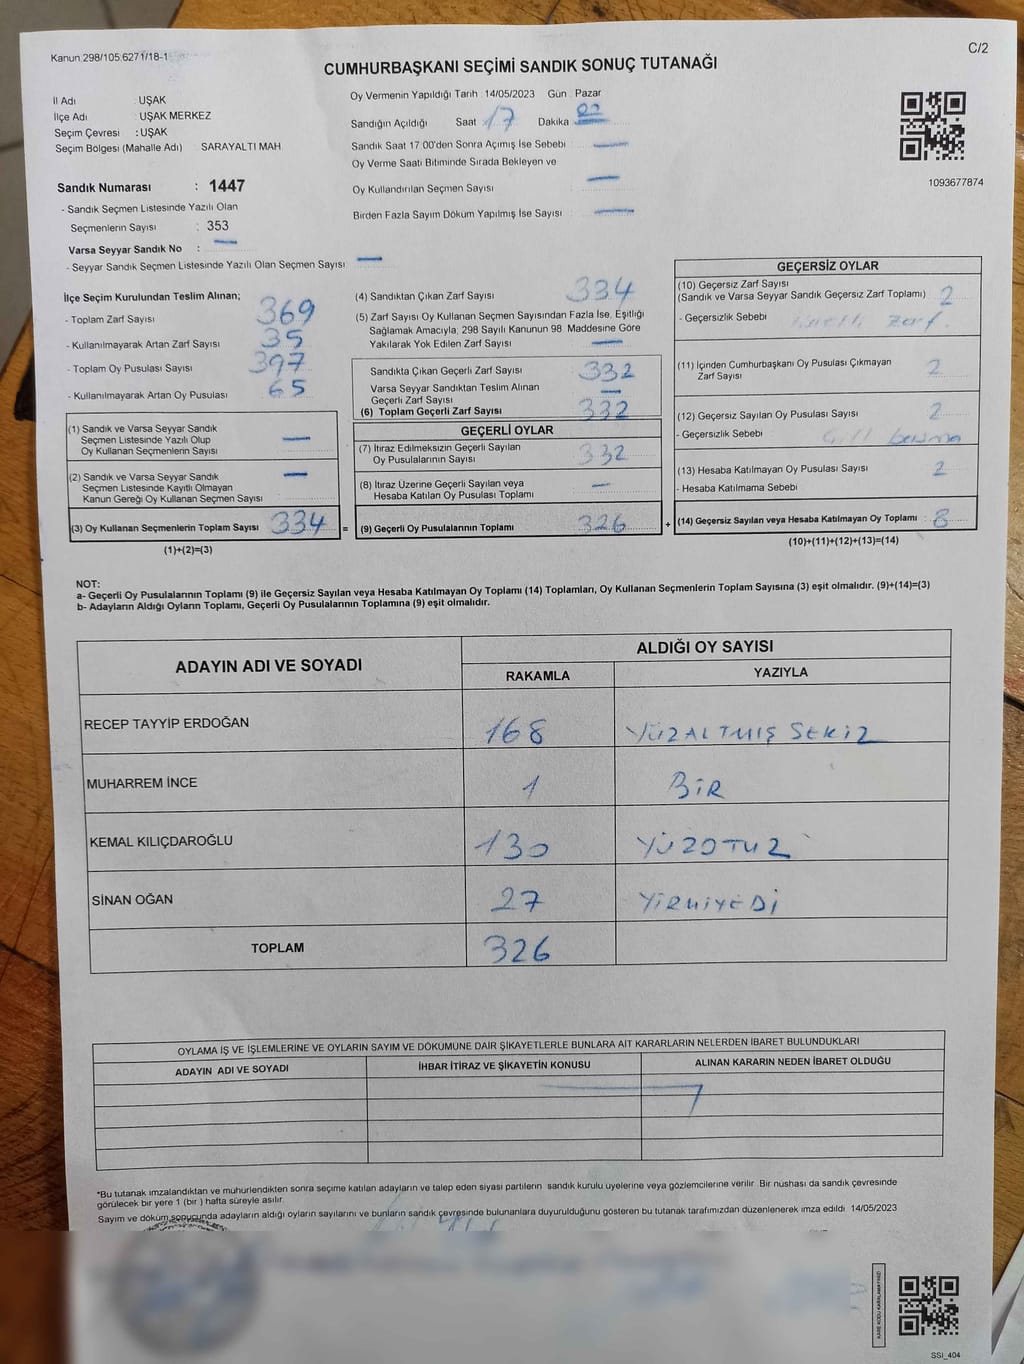 Kanun 298/105 6271/18-1
C/2
CUMHURBAŞKANI SEÇİMİ SANDIK SONUÇ TUTANAĞI
İl Adı : UŞAK
İlçe Adı : UŞAK MERKEZ
Seçim Çevresi : UŞAK
Seçim Bölgesi (Mahalle Adı) SARAYALTI MAH
Sandık Numarası : 1447
- Sandık Seçmen Listesinde Yazılı Olan
Seçmenlerin Sayısı : 353
Varsa Seyyar Sandık No : —
- Seyyar Sandık Seçmen Listesinde Yazılı Olan Seçmen Sayısı —
Oy Vermenin Yapıldığı Tarih 14/05/2023 Gün Pazar
Sandığın Açıldığı Saat 17 Dakika 00
Sandık Saat 17 00'den Sonra Açımış İse Sebebi —
Oy Verme Saati Bitiminde Sırada Bekleyen ve
Oy Kullandırılan Seçmen Sayısı —
Birden Fazla Sayım Döküm Yapılmış İse Sayısı —
1093677874
İlçe Seçim Kurulundan Teslim Alınan;
- Toplam Zarf Sayısı 369
- Kullanılmayarak Artan Zarf Sayısı 35
- Toplam Oy Pusulası Sayısı 397
- Kullanılmayarak Artan Oy Pusulası 65
(1) Sandık ve Varsa Seyyar Sandık
Seçmen Listesinde Yazılı Olup
Oy Kullanan Seçmenlerin Sayısı —
(2) Sandık ve Varsa Seyyar Sandık
Seçmen Listesinde Kayıtlı Olmayan
Kanun Gereği Oy Kullanan Seçmen Sayısı —
(3) Oy Kullanan Seçmenlerin Toplam Sayısı 334 =
(1)+(2)=(3)
(4) Sandıktan Çıkan Zarf Sayısı 334
(5) Zarf Sayısı Oy Kullanan Seçmen Sayısından Fazla İse, Eşitliği
Sağlamak Amacıyla, 298 Sayılı Kanunun 98. Maddesine Göre
Yakılarak Yok Edilen Zarf Sayısı —
Sandıkta Çıkan Geçerli Zarf Sayısı 332
Varsa Seyyar Sandıktan Teslim Alınan
Geçerli Zarf Sayısı —
(6) Toplam Geçerli Zarf Sayısı 332
GEÇERLİ OYLAR
(7) İtiraz Edilmeksizin Geçerli Sayılan
Oy Pusulalarının Sayısı 332
(8) İtiraz Üzerine Geçerli Sayılan veya
Hesaba Katılan Oy Pusulası Toplamı —
(9) Geçerli Oy Pusulalarının Toplamı 326 +
GEÇERSİZ OYLAR
(10) Geçersiz Zarf Sayısı
(Sandık ve Varsa Seyyar Sandık Geçersiz Zarf Toplamı) 2
- Geçersizlik Sebebi Zarf.
(11) İçinden Cumhurbaşkanı Oy Pusulası Çıkmayan
Zarf Sayısı 2
(12) Geçersiz Sayılan Oy Pusulası Sayısı 2
- Geçersizlik Sebebi
(13) Hesaba Katılmayan Oy Pusulası Sayısı 2
- Hesaba Katılmama Sebebi
(14) Geçersiz Sayılan veya Hesaba Katılmayan Oy Toplamı 8
(10)+(11)+(12)+(13)=(14)
NOT:
a- Geçerli Oy Pusulalarının Toplamı (9) ile Geçersiz Sayılan veya Hesaba Katılmayan Oy Toplamı (14) Toplamları, Oy Kullanan Seçmenlerin Toplam Sayısına (3) eşit olmalıdır. (9)+(14)=(3)
b- Adayların Aldığı Oyların Toplamı, Geçerli Oy Pusulalarının Toplamına (9) eşit olmalıdır.
ADAYIN ADI VE SOYADI
ALDIĞI OY SAYISI
RAKAMLA YAZIYLA
RECEP TAYYİP ERDOĞAN 168 YÜZALTMIŞ SEKİZ
MUHARREM İNCE 1 BİR
KEMAL KILIÇDAROĞLU 130 YÜZOTUZ
SİNAN OĞAN 27 YİRMİYEDİ
TOPLAM 326
OYLAMA İŞ VE İŞLEMLERİNE VE OYLARIN SAYIM VE DÖKÜMÜNE DAİR ŞİKAYETLERLE BUNLARA AİT KARARLARIN NELERDEN İBARET BULUNDUKLARI
ADAYIN ADI VE SOYADI İHBAR İTİRAZ VE ŞİKAYETİN KONUSU ALINAN KARARIN NEDEN İBARET OLDUĞU
*Bu tutanak imzalandıktan ve mühürlendikten sonra seçime katılan adayların ve talep eden siyasi partilerin sandık kurulu üyelerine veya gözlemcilerine verilir. Bir nüshası da sandık çevresinde
görülecek bir yere 1 (bir ) hafta süreyle asılır.
Sayım ve döküm sonucunda adayların aldığı oyların sayılarını ve bunların sandık çevresinde bulunanlara duyurulduğunu gösteren bu tutanak tarafımızdan düzenlenerek imza edildi 14/05/2023
SSİ_404